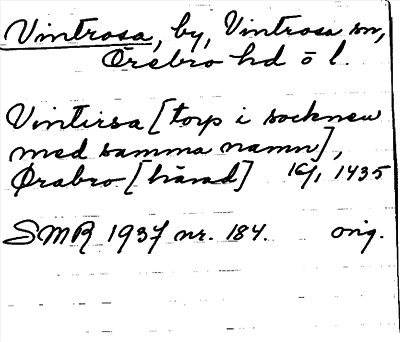 Vintrosa, by, Vintrosa sn,
Örebro hd o l.
Vintirsa [torp i socknen
med samma namn],
Ørabro [härad] 16/1 1435
SMR 1937 nr. 184. orig.